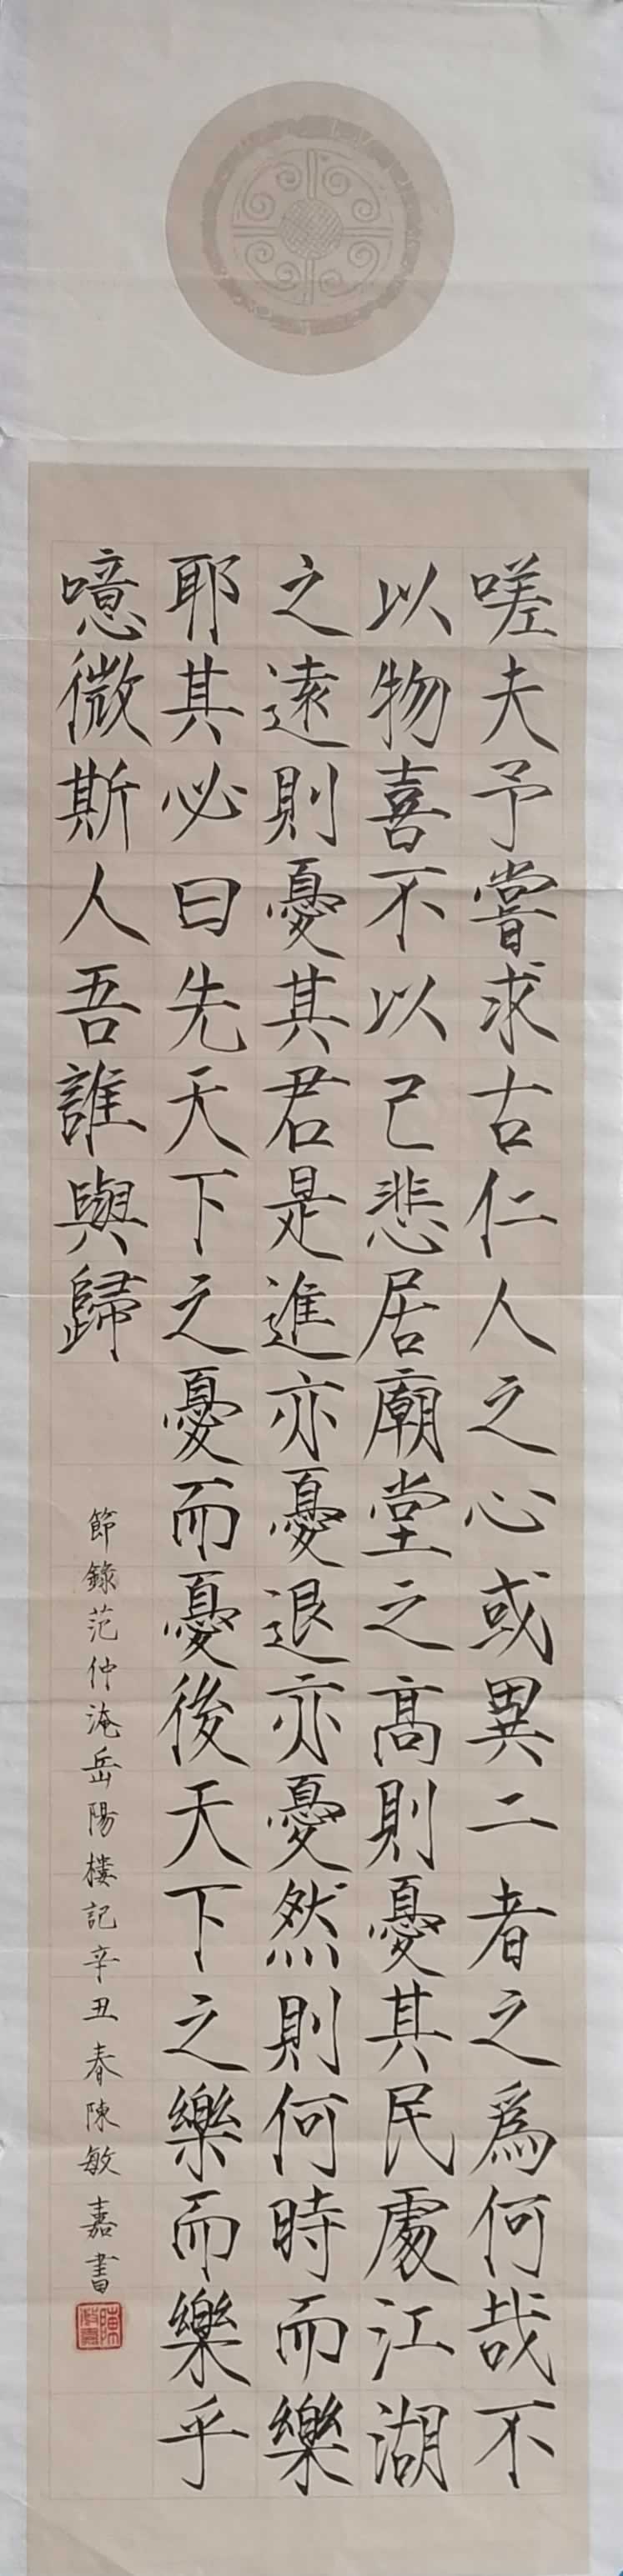 嗟夫予嘗求古仁人之心或異二者之為何哉不
以物喜不以己悲居廟堂之高則憂其民處江湖
之遠則憂其君是進亦憂退亦憂然則何時而樂
耶其必曰先天下之憂而憂後天下之樂而樂乎
噫微斯人吾誰與歸
節錄范仲淹岳陽樓記辛丑春陳敏嘉書